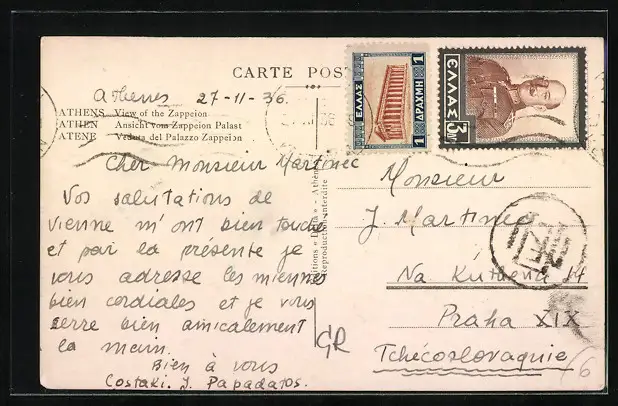 CARTE POST
Athenes 27-11-36.
ATHENS View of the Zappeion
ATHEN Ansicht vom Zappeion Palast
ATENE Veduta del Palazzo Zappeion
Cher Monsieur Martinec
Vos salutations de
Vienne m'ont bien touché
et par la présente je
vous adresse les miennes
bien cordiales et je vous
serre bien amicalement
la main.
Bien à vous
Costaki. J. Papadatos.
Reproduction interdite
ΕΛΛΑΣ
1 ΔΡΑΧΜΗ 1
ΕΛΛΑΣ
3
Monsieur
J. Martinec
Na 14
Praha XIX
Tchécoslovaquie
GR
6